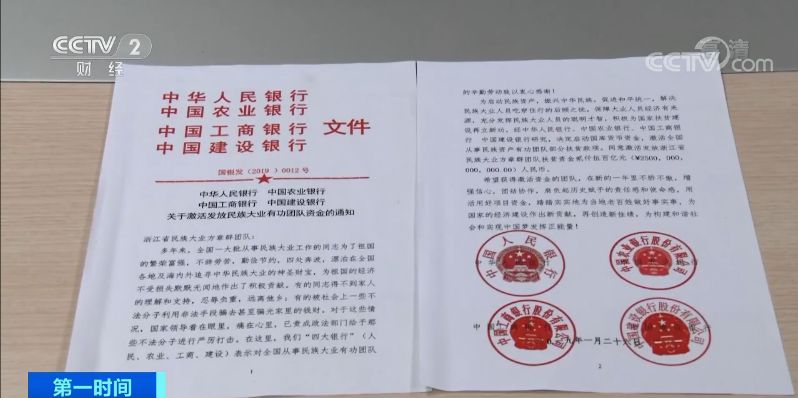 CCTV 2
财经
高清
CCTV.com
中华人民银行
中国农业银行
中国工商银行
中国建设银行
文件
国银发(2019)0012号
中华人民银行 中国农业银行
中国工商银行 中国建设银行
关于激活发放民族大业有功团队资金的通知
浙江省民族大业方章群团队:
多年来,全国一大批从事民族大业工作的同志为了祖国
的繁荣富强,不辞劳苦,勤俭节约,四处奔波,漂泊在全国
各地及海内外追寻中华民族大业的神圣财宝,为祖国的经济
不受损失默默无闻地作出了积极贡献。有的同志得不到家人
的理解和支持,忍辱负重,远离他乡;有的被社会上一些不
法分子利用非法手段骗去甚至骗光家里的钱财,对于这些情
况,国家领导看在眼里,痛在心里,已责成政法部门给予那
些不法分子进行严厉打击。在这里,我们“四大银行”(人
民、农业、工商、建设)表示对全国从事民族大业有功团队
1
的辛勤劳动致以衷心感谢!
为启动民族资产,振兴中华民族,促进和平统一,解决
民族大业人员吃穿住行的后顾之忧,保障大业人员经济有来
源,充分发挥民族大业人员的聪明才智,积极为国家扶贫建
设再立新功。经中华人民银行、中国农业银行、中国工商银
行 中国建设银行研究,决定启动国库货币资金,激活全国
从事民族资产有功团队部分扶贫款项。同意激活发放浙江省
民族大业方章群团队扶贫资金贰仟伍百亿元(¥2500,000,
000,000.00)人民币。
希望获得激活资金的团队,在新的一年里不骄不傲,增
强信心,团结协作,肩负起历史赋予的责任感和使命感,用
活用好项目资金,踏踏实实地为当地老百姓做好事实事,为
国家的经济建设作出新贡献,再创造新佳绩,为构建和谐社
会和实现中国梦发挥正能量!
中国人民银行
中国农业银行股份有限公司
中国工商银行股份有限公司
中国建设银行股份有限公司
九年一月二十六日
2
第一时间